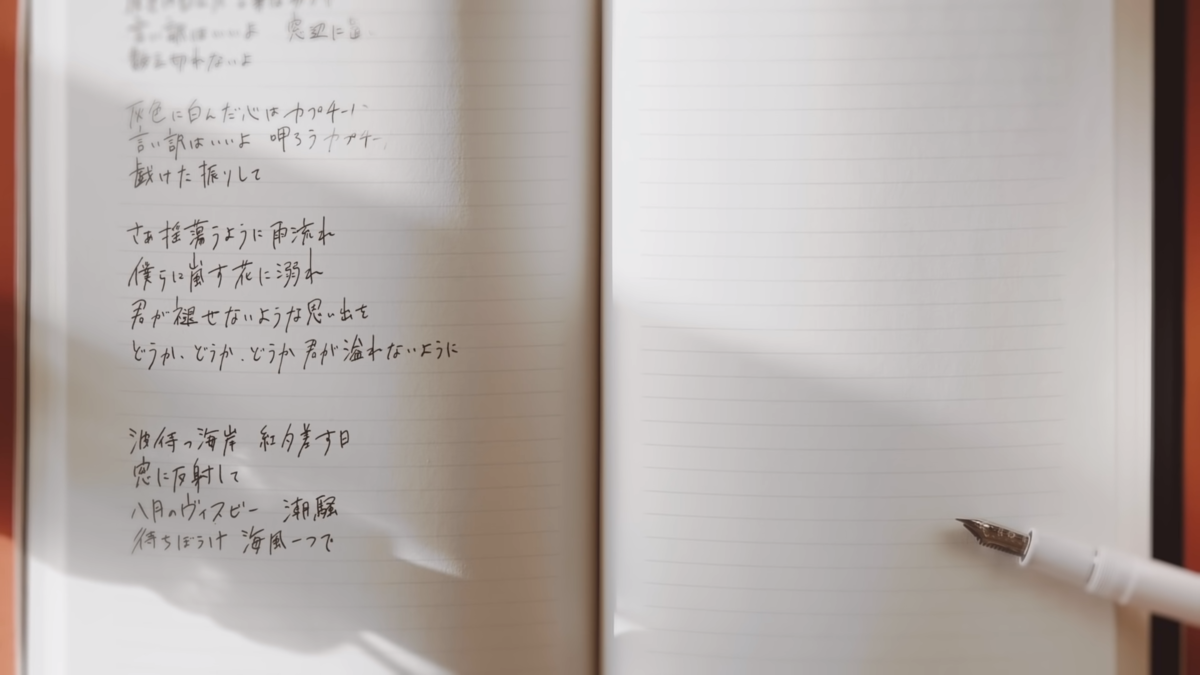 言い訳はいいよ　窓辺に
数え切れないよ
灰色に白んだ心はカプチー
言い訳はいいよ　呷ろうカプチー
戯けた振りして
さぁ揺蕩うように雨流れ
僕らに嵐す花に溺れ
君が褪せないような思い出を
どうか、どうか、どうか君が溢れないように
波待つ海岸　紅夕差す日
窓に反射して
八月のヴィスビー　潮騒
待ちぼうけ　海風一つで